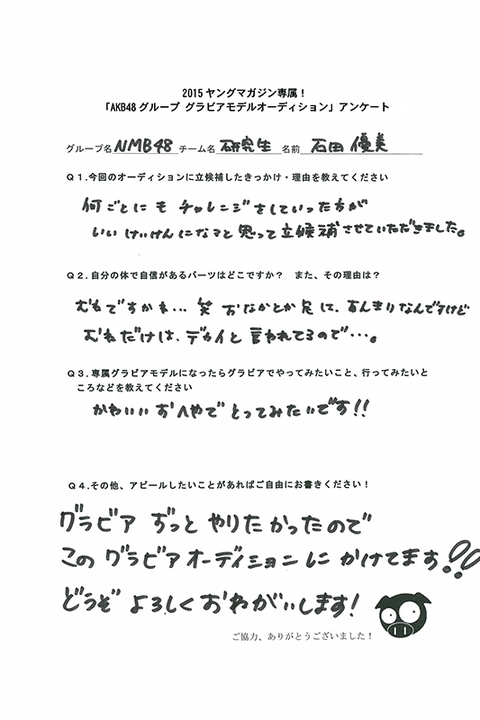 2015ヤングマガジン専属！
「AKB48グループ グラビアモデルオーディション」アンケート
グループ名 NMB48 チーム名 研究生 名前 石田 優美
Q1.今回のオーディションに立候補したきっかけ・理由を教えてください
何ごとにも チャレンジをしていった方が
いい けいけんになると思って立候補させていただきました。
Q2.自分の体で自信があるパーツはどこですか？ また、その理由は？
むねですかね… 笑 おなかとか足は、あんまりなんですけど
むねだけは、デカイと言われてるので…。
Q3.専属グラビアモデルになったらグラビアでやってみたいこと、行ってみたいと
ころなどを教えてください
かわいい おへやで とってみたいです!!
Q4.その他、アピールしたいことがあればご自由にお書きください！
グラビア ずっと やりたかったので
このグラビアオーディションに かけてます!!
どうぞ よろしく おねがいします!
ご協力、ありがとうございました！